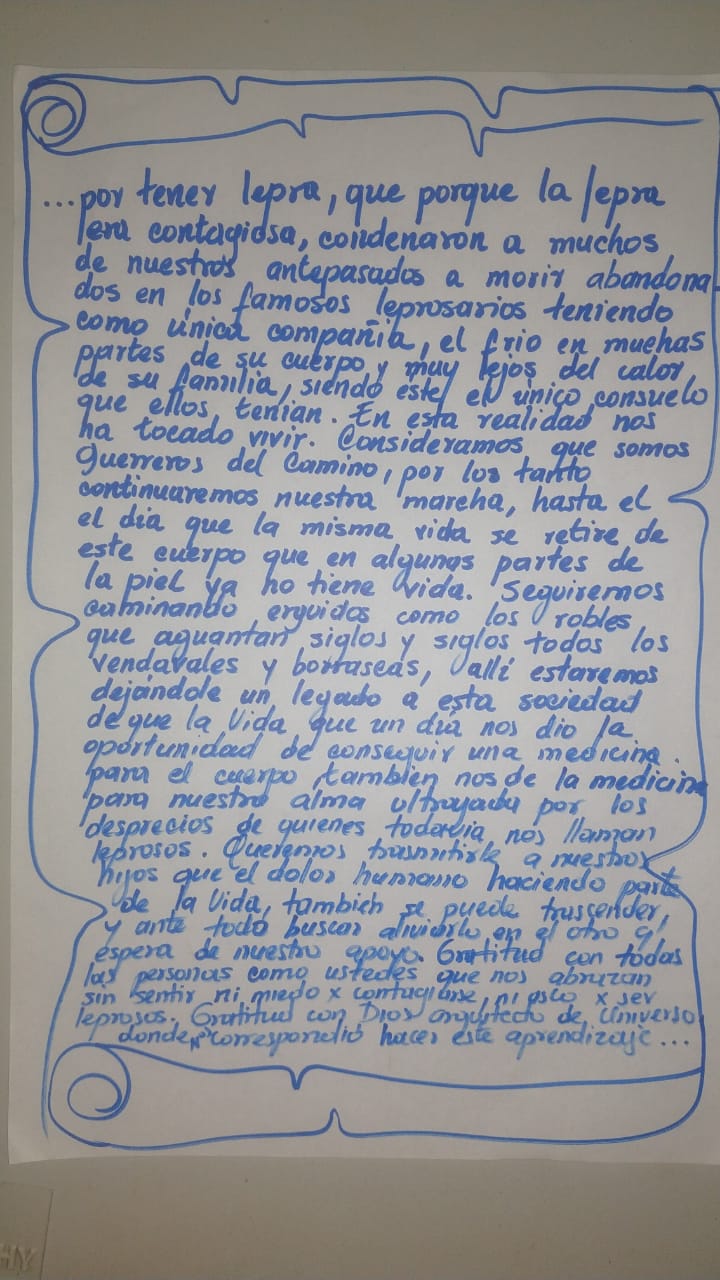 ...por tener lepra, que porque la lepra
era contagiosa, condenaron a muchos
de nuestros antepasados a morir abandona
dos en los famosos leprosarios teniendo
como única compañia, el frio en muchas
partes de su cuerpo y muy lejos del calor
de su familia, siendo este el único consuelo
que ellos tenian. En esta realidad nos
ha tocado vivir. Consideramos que somos
Guerreros del Camino, por los tanto
continuaremos nuestra marcha, hasta el
el dia que la misma vida se retire de
este cuerpo que en algunas partes de
la piel ya no tiene vida. Seguiremos
caminando erguidos como los robles
que aguantan siglos y siglos todos los
vendavales y borrascas, allí estaremos
dejándole un legado a esta sociedad
de que la Vida que un dia nos dio la
oportunidad de conseguir una medicina
para el cuerpo tambien nos de la medicina
para nuestra alma ultrajada por los
desprecios de quienes todavia nos llaman
leprosos. Queremos trasmitirle a nuestros
hijos que el dolor humano haciendo parte
de la Vida, tambien se puede trascender,
y ante todo buscar aliviarlo en el otro q'
espera de nuestro apoyo. Gratitud con todas
las personas como ustedes que nos abrazan
sin sentir ni miedo x contagiarse, ni asco x ser
leprosos. Gratitud con Dios arquitecto de Universo
donde nos correspondió hacer este aprendizaje...